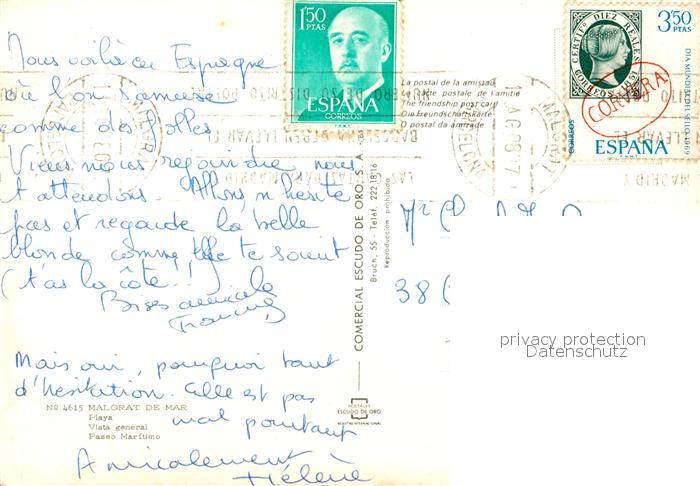 1'50
PTAS
ESPAÑA
CORREOS
F.N.M.T.
CERTIFDO DIEZ REALES
CORREOS 1851
3'50
PTAS
CORVERA
DIA MUNDIAL DEL SELLO 1969
CORREOS
ESPAÑA
F.N.M.T.
MALGRAT
BARCELONA
MADRID Y
La postal de la amistad
Carte postale de l'amitié
The friendship post card
Die freundschaftskarte
O postal da amizade
Nous voilà en Espagne
où l'on s'amuse
comme des folles.
Viens nous rejoindre nous
t'attendons. Allons n'hésite
pas et regarde la belle
blonde comme elle te sourit
(t'as la côte !!)
Bises amicales
Francine
Mais oui, pourquoi tant
d'hésitation. Elle est pas
mal pourtant
Amicalement
Hélène
Nº 4615 MALGRAT DE MAR
Playa
Vista general
Paseo Marítimo
COMERCIAL ESCUDO DE ORO, S. A.
Bruch, 55 - Teléf. 222 18 16
Reproducción prohibida
POSTALES
ESCUDO DE ORO
REGISTRO INTERNACIONAL
Mr
38
privacy protection
Datenschutz